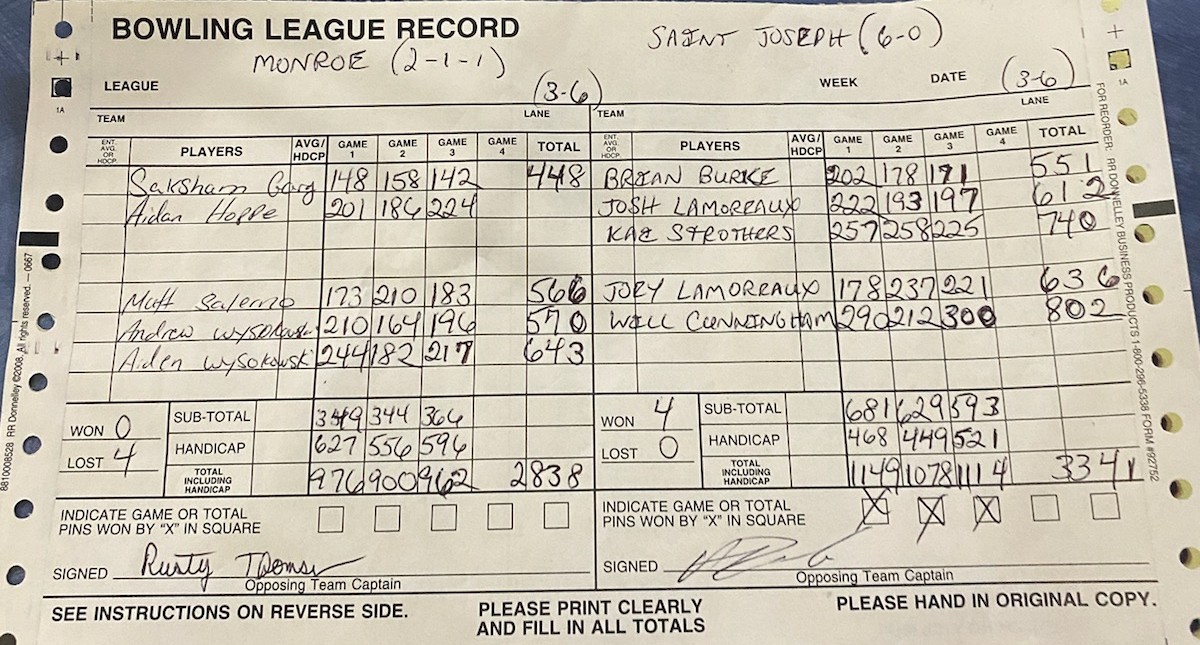 BOWLING LEAGUE RECORD
MONROE (2-1-1) SAINT JOSEPH (6-0)
LEAGUE (3-6) WEEK DATE (3-6)
TEAM LANE TEAM LANE
ENT. AVG. OR HDCP. PLAYERS AVG/ HDCP GAME 1 GAME 2 GAME 3 GAME 4 TOTAL ENT. AVG. OR HDCP. PLAYERS AVG/ HDCP GAME 1 GAME 2 GAME 3 GAME 4 TOTAL
Saksham Garg 148 158 142 448 BRIAN BURKE 202 178 171 551
Aidan Hoppe 201 186 224 JOSH LAMOREAUX 222 193 197 612
KAE STROTHERS 257 258 225 740
Matt Salerno 173 210 183 566 JOEY LAMOREAUX 178 237 221 636
Andrew Wysokowski 210 164 196 570 WILL CUNNINGHAM 290 212 300 802
Aiden Wysokowski 244 182 217 643
WON 0 SUB-TOTAL 349 344 366 WON 4 SUB-TOTAL 681 629 593
LOST 4 HANDICAP 627 556 596 LOST 0 HANDICAP 468 449 521
TOTAL INCLUDING HANDICAP 976 900 962 2838 TOTAL INCLUDING HANDICAP 1149 1078 1114 3341
INDICATE GAME OR TOTAL INDICATE GAME OR TOTAL
PINS WON BY "X" IN SQUARE PINS WON BY "X" IN SQUARE X X X
SIGNED Rusty SIGNED
Opposing Team Captain Opposing Team Captain
SEE INSTRUCTIONS ON REVERSE SIDE. PLEASE PRINT CLEARLY PLEASE HAND IN ORIGINAL COPY.
AND FILL IN ALL TOTALS
8810008528 RR Donnelley ©2008. All rights reserved. — 0667
FOR REORDER: RR DONNELLEY BUSINESS PRODUCTS 1-800-296-5338 FORM #92752
1A
1A